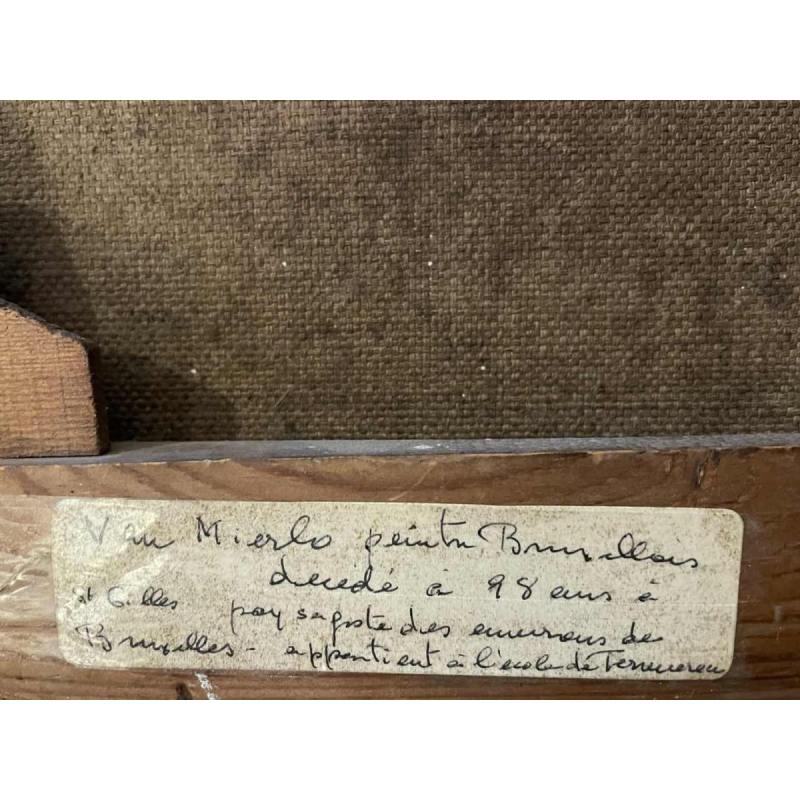 Van Mierlo peintre Bruxellois
décédé à 98 ans à
St Gilles paysagiste des environs de
Bruxelles - appartient à l'école de Tervueren